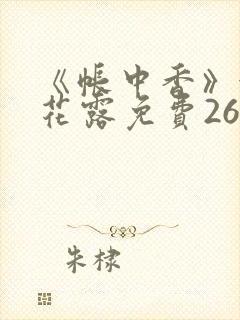 《帐中香》
花露免費26
朱棣